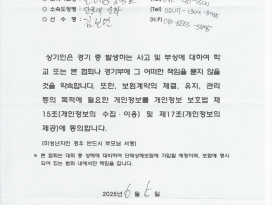 ○ 소속도장명 :
○ 선 수 명 :
상기인은 경기 중 발생하는 사고 및 부상에 대하여 학
교 또는 본 협회나 경기부에 그 어떠한 책임을 묻지 않을
것을 약속합니다. 또한, 보험계약의 체결, 유지, 관리
등의 목적에 필요한 개인정보를 개인정보 보호법 제
15조(개인정보의 수집·이용) 및 제17조(개인정보의
제공)에 동의합니다.
(미성년자인 경우 반드시 부모님 서명)
※ 본 협회는 대회 중 상해에 대하여 단체상해보험에 가입할 예정이며, 보험에 명시
되어 있는 범위 내에서만 책임을 집니다.
2025년 6 월 일